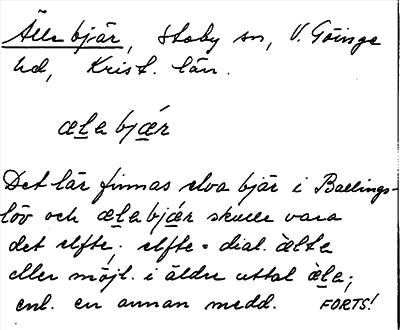 Älle bjär, Stoby sn, V. Göinge
hd, Krist. län.
æl̲a bjǽ̲r
Det lär finnas elva bjär i Ballings-
löv och æl̲a bjǽ̲r skulle vara
det elfte; elfte = dial. àlta
eller möjl. i äldre uttal æ̀l̲a;
enl. en annan medd. FORTS!